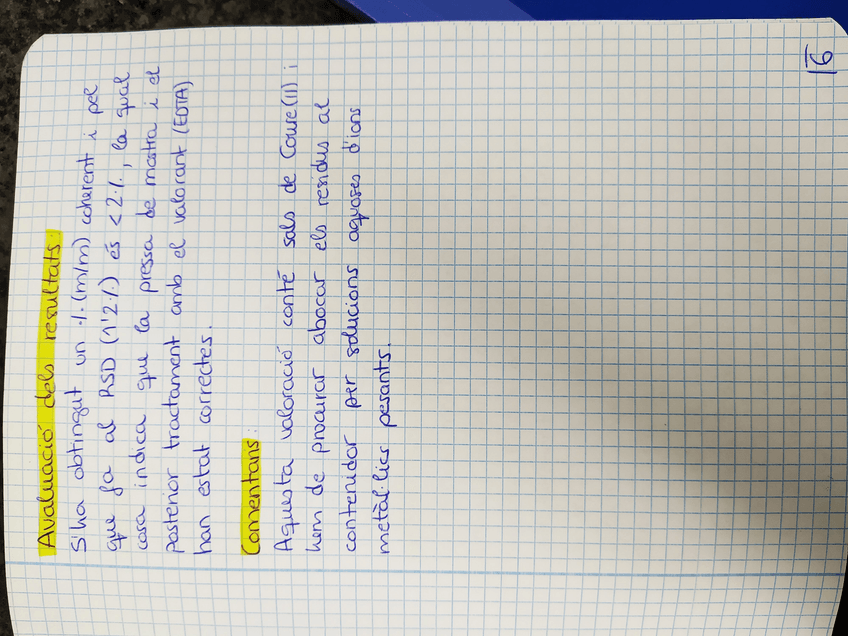 Avaluació dels resultats:
S'ha obtingut un % (m/m) coherent i pel
que fa al RSD (1'2%) és <2%, la qual
cosa indica que la pressa de mostra i el
posterior tractament amb el valorant (EDTA)
han estat correctes.
Comentaris:
Aquesta valoració conté sals de Coure(II) i
hem de procurar abocar els residus al
contenidor per solucions aquoses d'ions
metàl·lics pesants.
16